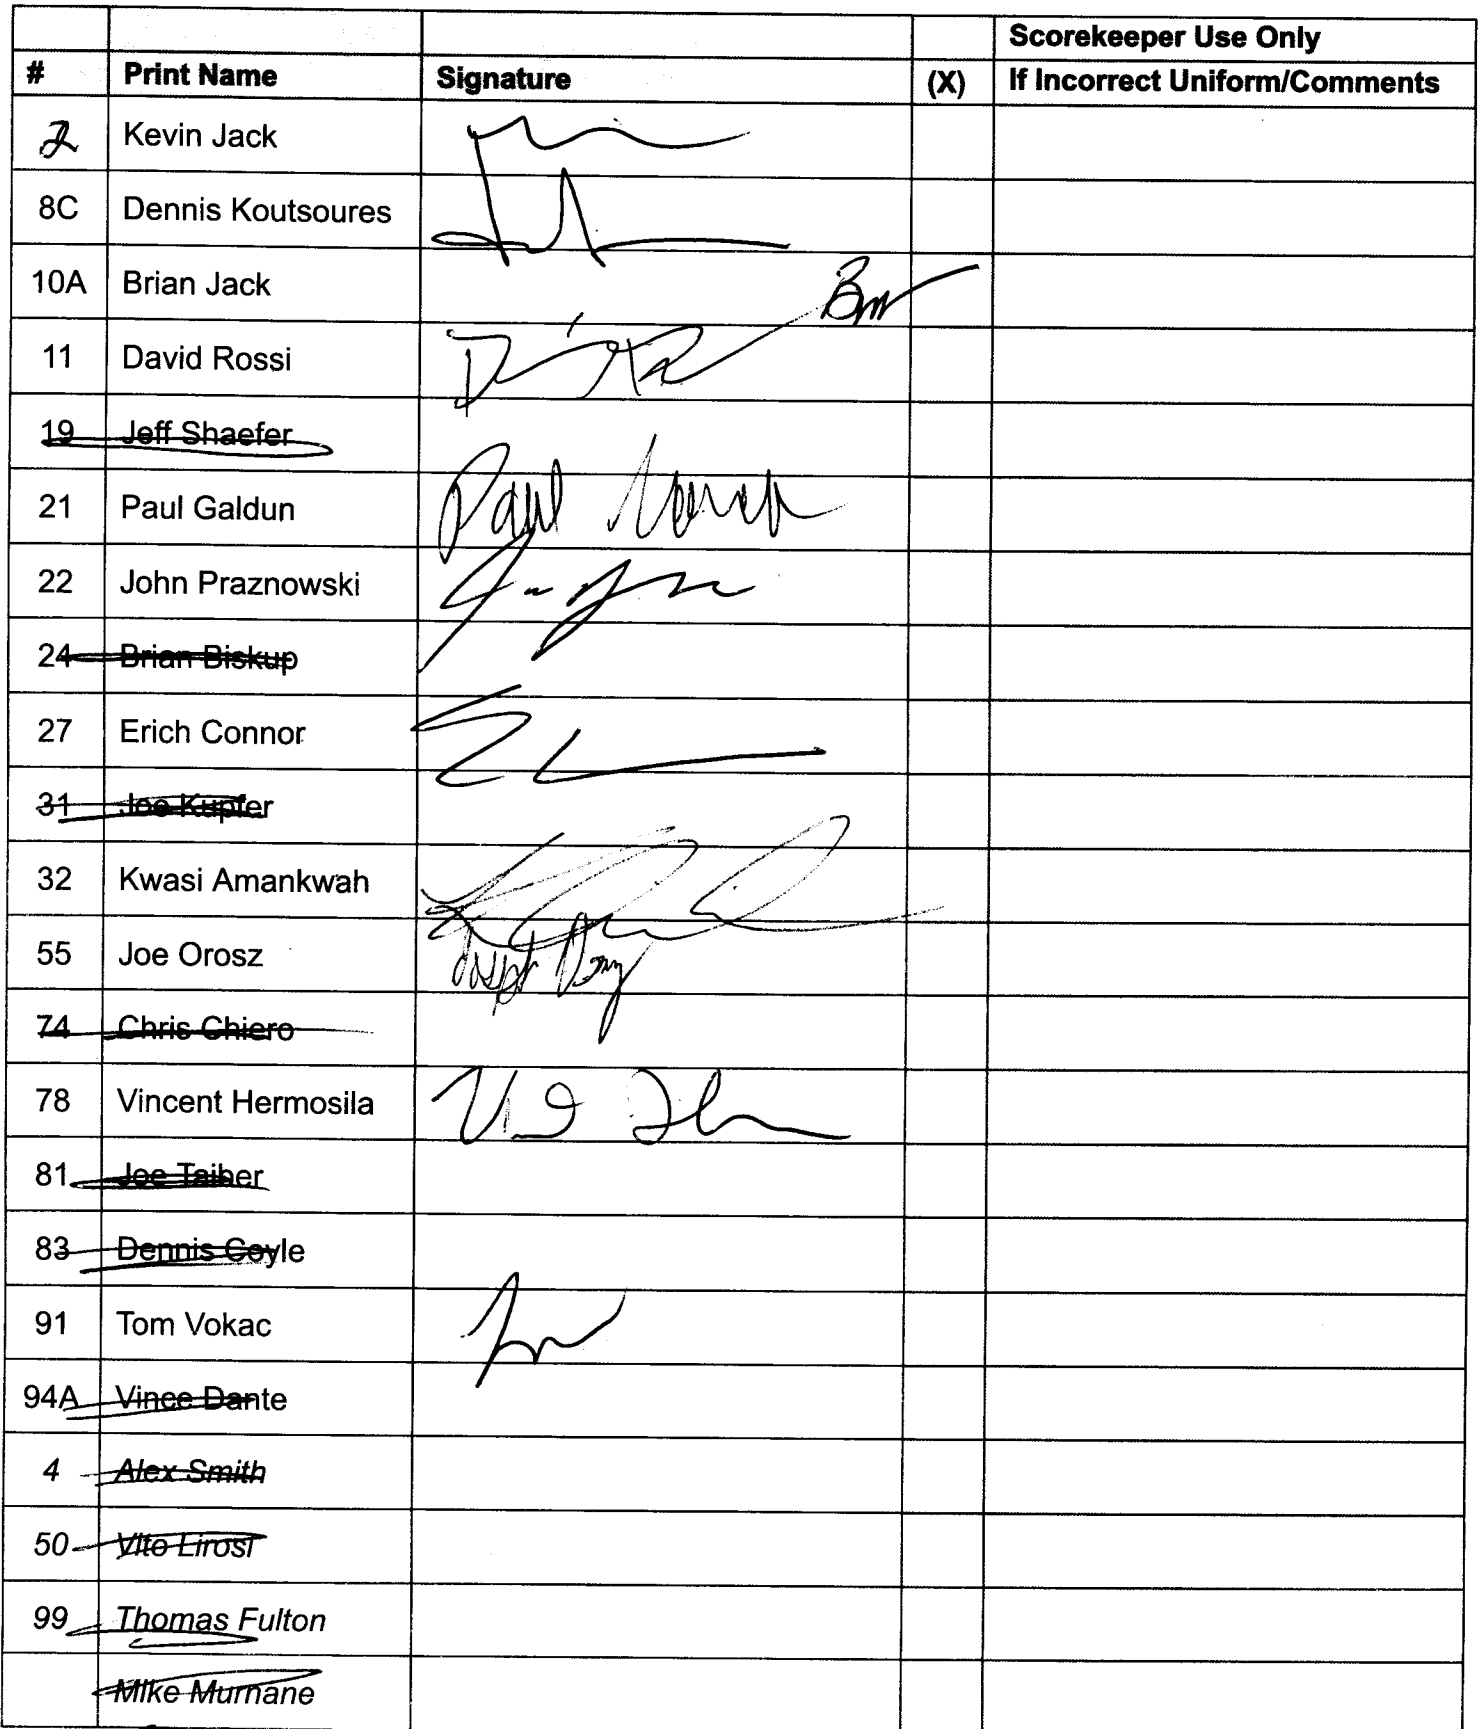 Scorekeeper Use Only
# Print Name Signature (X) If Incorrect Uniform/Comments
2 Kevin Jack
8C Dennis Koutsoures
10A Brian Jack
11 David Rossi
19 Jeff Shaefer
21 Paul Galdun Paul
22 John Praznowski
24 Brian Biskup
27 Erich Connor
31 Joe Kupfer
32 Kwasi Amankwah
55 Joe Orosz
74 Chris Chiero
78 Vincent Hermosila
81 Joe Taiber
83 Dennis Coyle
91 Tom Vokac
94A Vince Dante
4 Alex Smith
50 Vito Lirosi
99 Thomas Fulton
Mike Murnane